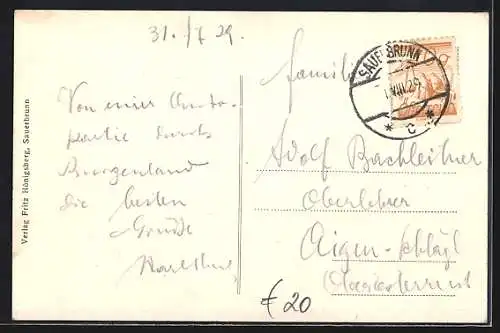 31. /7 29.
Von einer Auto-
partie durchs
Burgenland
die besten
Grüße
Verlag Fritz Hönigsberg, Sauerbrunn
Familie
SAUERBRUNN
VIII.29
* C *
Adolf Bachleitner
Oberlehrer
Aigen-Schlägl
Oberösterreich
€ 20